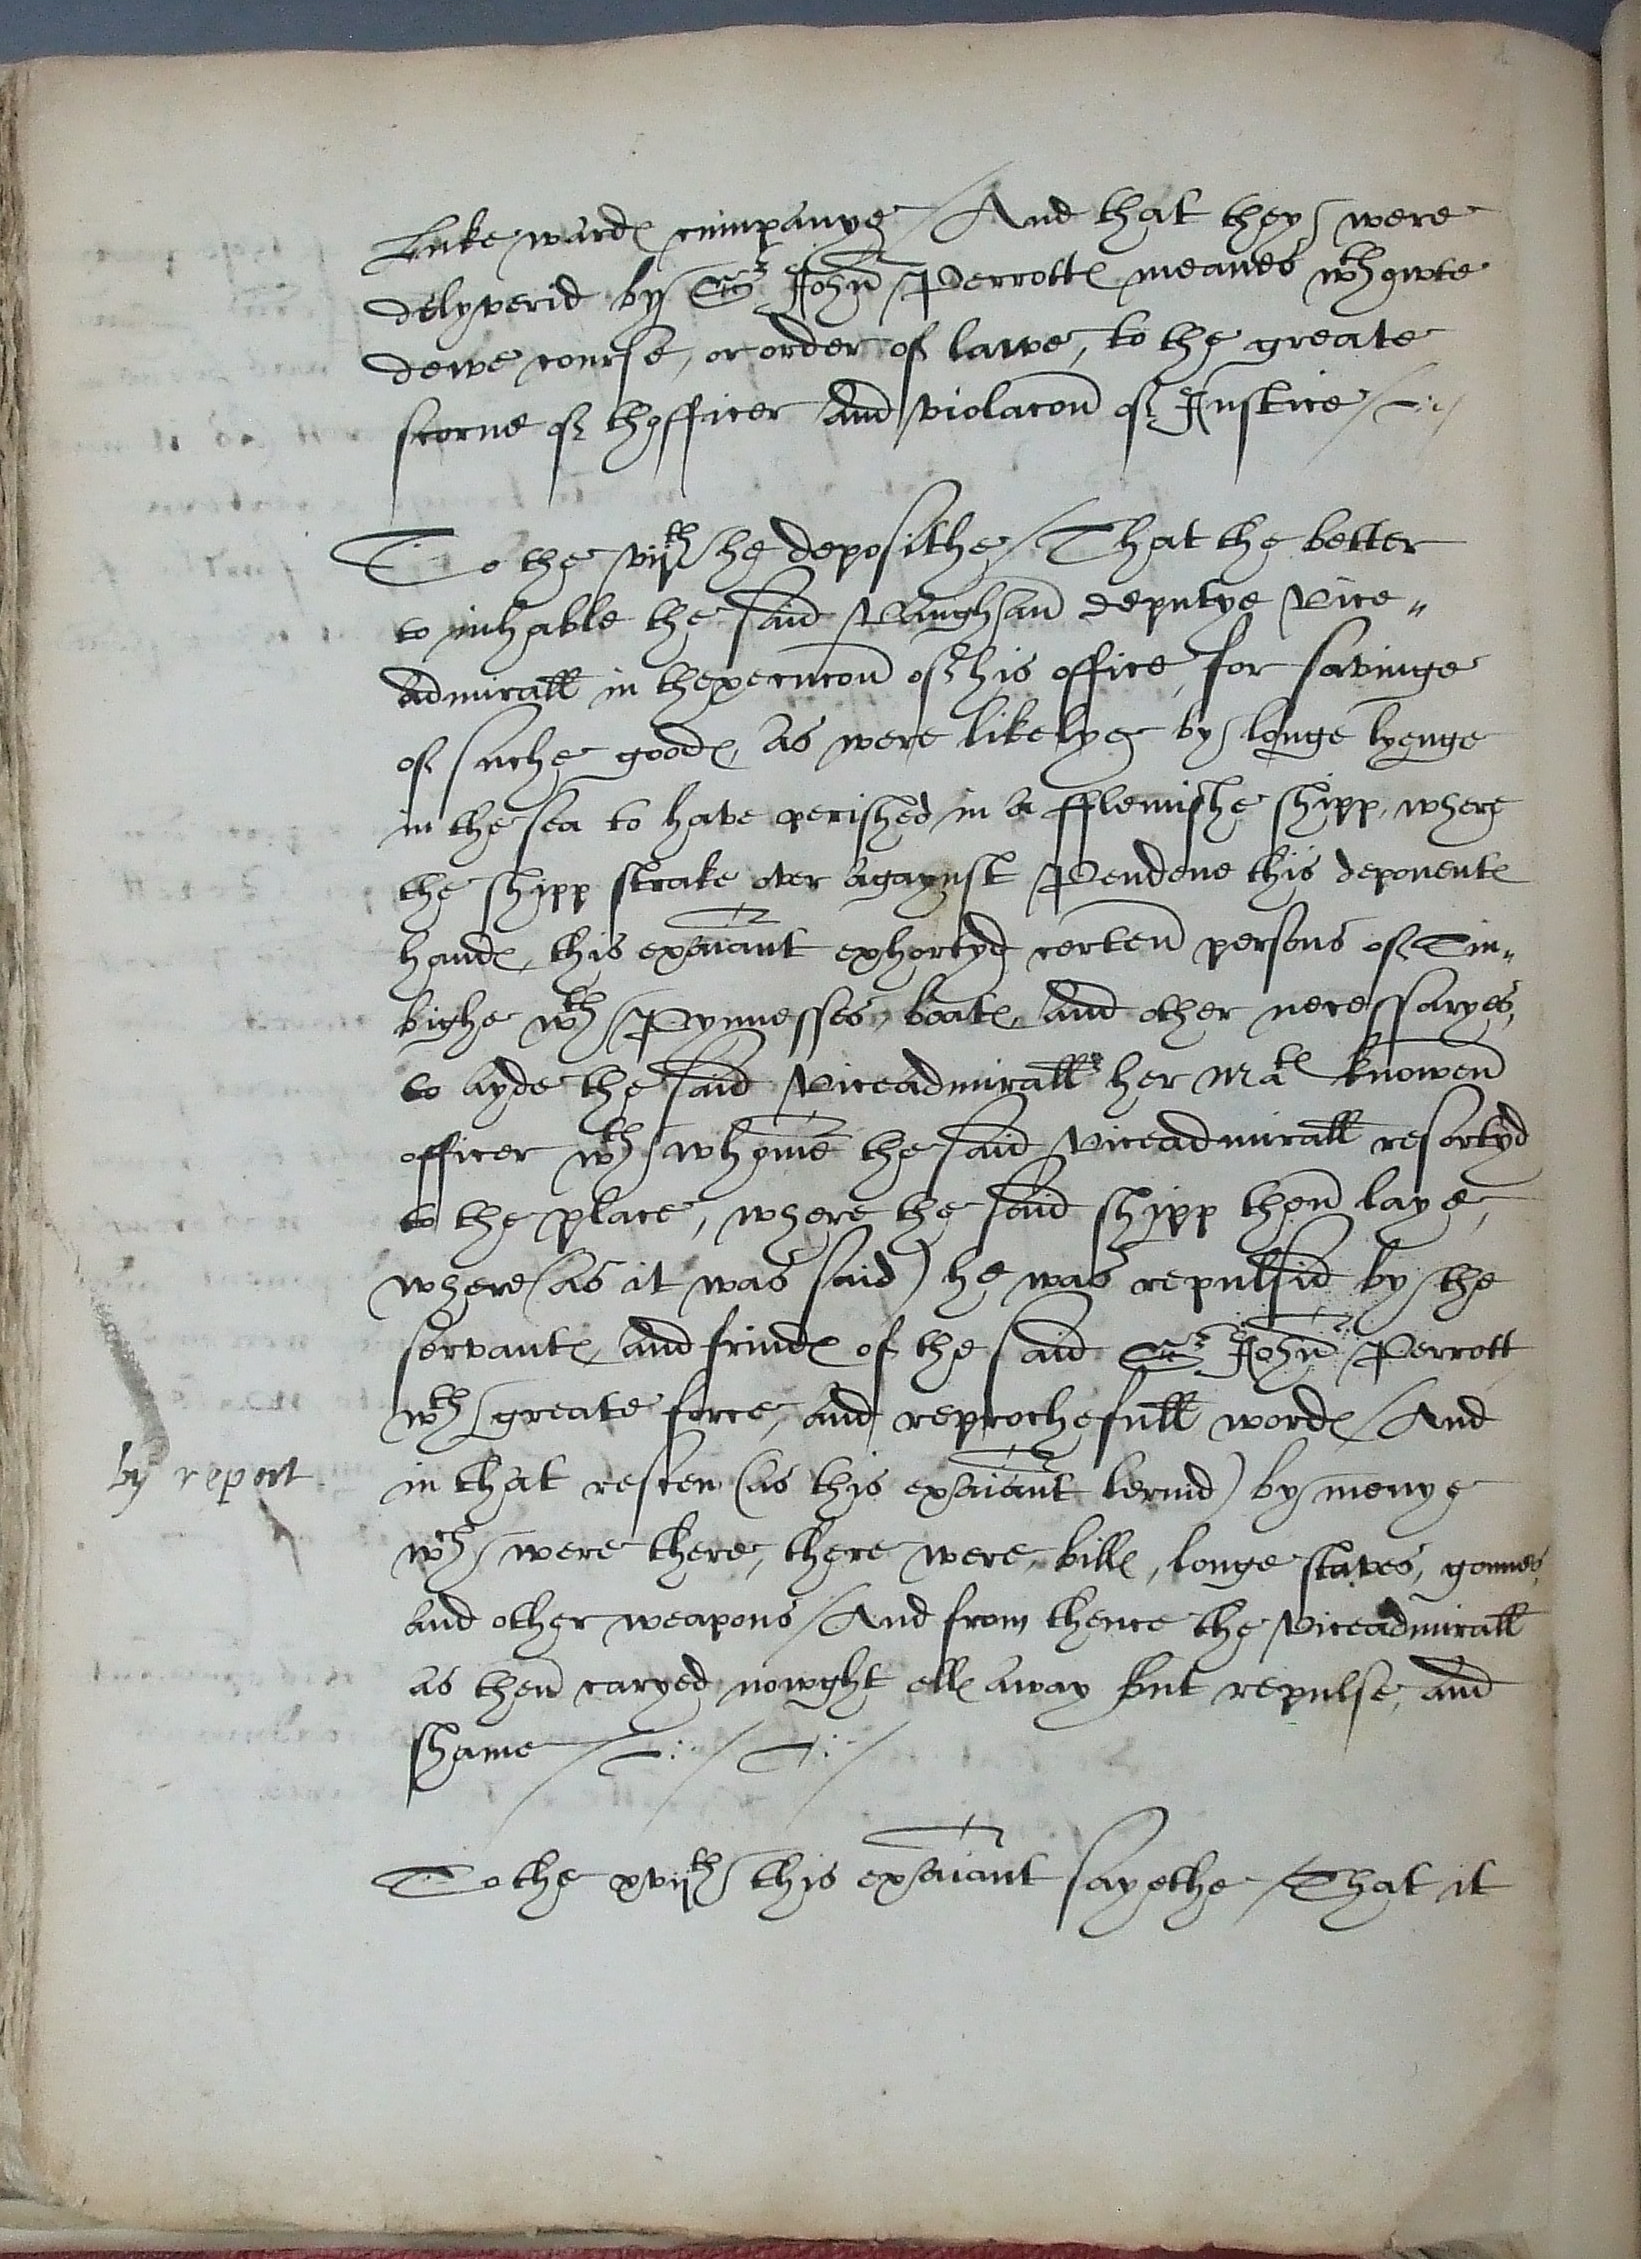 Luke wardes cumpanye / And that they were
delyverid by Sr John Perrottes meanes wthowte
dewe course, or order of lawe, to the greate
scorne of thofficer and violacon of Justice /
To the vijth he deposithe / That the better
to inhable the said Vaughan deputye Vice„
admirall in thexecucon of his office, for savinge
of suche goodes, as were likelye by longe lyenge
in the sea to have perished in a fflemishe shipp, where
the shipp strake over agaynst Pendene this deponentes
handes, this exaiant exhortyd certen persons of Tin„
bighe wth Pynnesses, boates, and other necessaryes,
to ayde the said Viceadmirall her Mates knowen
officer wth whome the said Viceadmirall resortyd
to the place, where the said shipp then laye,
where (as it was said) he was repulsid by the
servantes and frindes of the said Sr John Perrott
wth greate force, and reprochefull wordes / And
by report
in that rescen (as this exaiant lernid) by monye
wch were there, there were billes, longe staves, gonnes,
and other weapons / And from thence the Viceadmirall
as then caryed nowght elles away but repulse, and
shame /
To the xvijth this exaiant saythe / That it